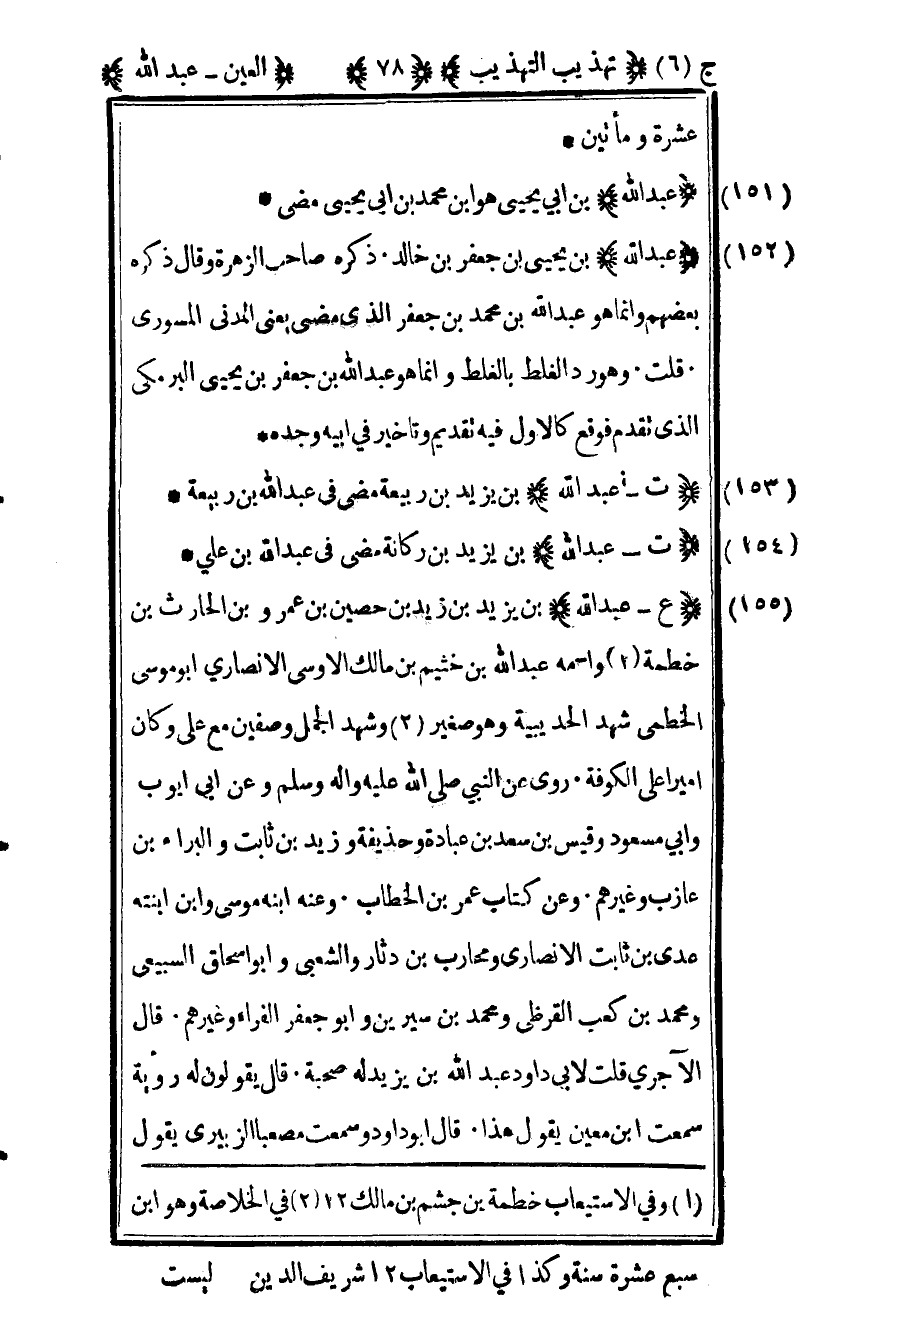 ج (٦) ﴿ تهذيب التهذيب ﴾ ﴿ ٧٨ ﴾ ﴿ العين ـ عبد الله ﴾
عشرة و مأتين *
(١٥١) ﴿ عبدالله ﴾ بن ابي يحيى هو ابن محمد بن ابي يحيى مضى *
(١٥٢) ﴿ عبدالله ﴾ بن يحيى بن جعفر بن خالد · ذكره صاحب الزهرة وقال ذكره
بعضهم وانما هو عبدالله بن محمد بن جعفر الذى مضى يعنى المدنى المسورى
· قلت · وهو رد الغلط بالغلط و انما هو عبدالله بن جعفر بن يحيى البرمكى
الذى تقدم فوقع كالاول فيه تقديم وتاخير في ابيه وجده *
(١٥٣) ﴿ ت ـ عبد الله ﴾ بن يزيد بن ربيعة مضى فى عبدالله بن ربيعة *
(١٥٤) ﴿ ت ـ عبدالله ﴾ بن يزيد بن ركانة مضى فى عبدالله بن علي *
(١٥٥) ﴿ ع ـ عبدالله ﴾ بن يزيد بن زيد بن حصين بن عمرو بن الحارث بن
خطمة (١) واسمه عبدالله بن خثيم بن مالك الاوسى الانصاري ابو موسى
الخطمى شهد الحديبية وهو صغير (٢) وشهد الجمل وصفين مع على وكان
اميرا على الكوفة · روى عن النبي صلى الله عليه واله وسلم و عن ابى ايوب
وابي مسعود وقيس بن سعد بن عبادة وحذيفة و زيد بن ثابت و البراء بن
عازب وغيرهم · وعن كتاب عمر بن الخطاب · وعنه ابنه موسى وابن ابنته
عدى بن ثابت الانصارى ومحارب بن دثار والشعبى و ابو اسحاق السبيعى
ومحمد بن كعب القرظى ومحمد بن سيرين و ابو جعفر الفراء وغيرهم · قال
الآجري قلت لابي داود عبد الله بن يزيد له صحبة · قال يقولون له رؤية
سمعت ابن معين يقول هذا · قال ابو داود وسمعت مصعبا الزبيرى يقول
(١) وفي الاستيعاب خطمة بن جشم بن مالك ١٢ (٢) في الخلاصة وهو ابن
سبع عشرة سنة وكذا في الاستيعاب ١٢ شريف الدين ليست